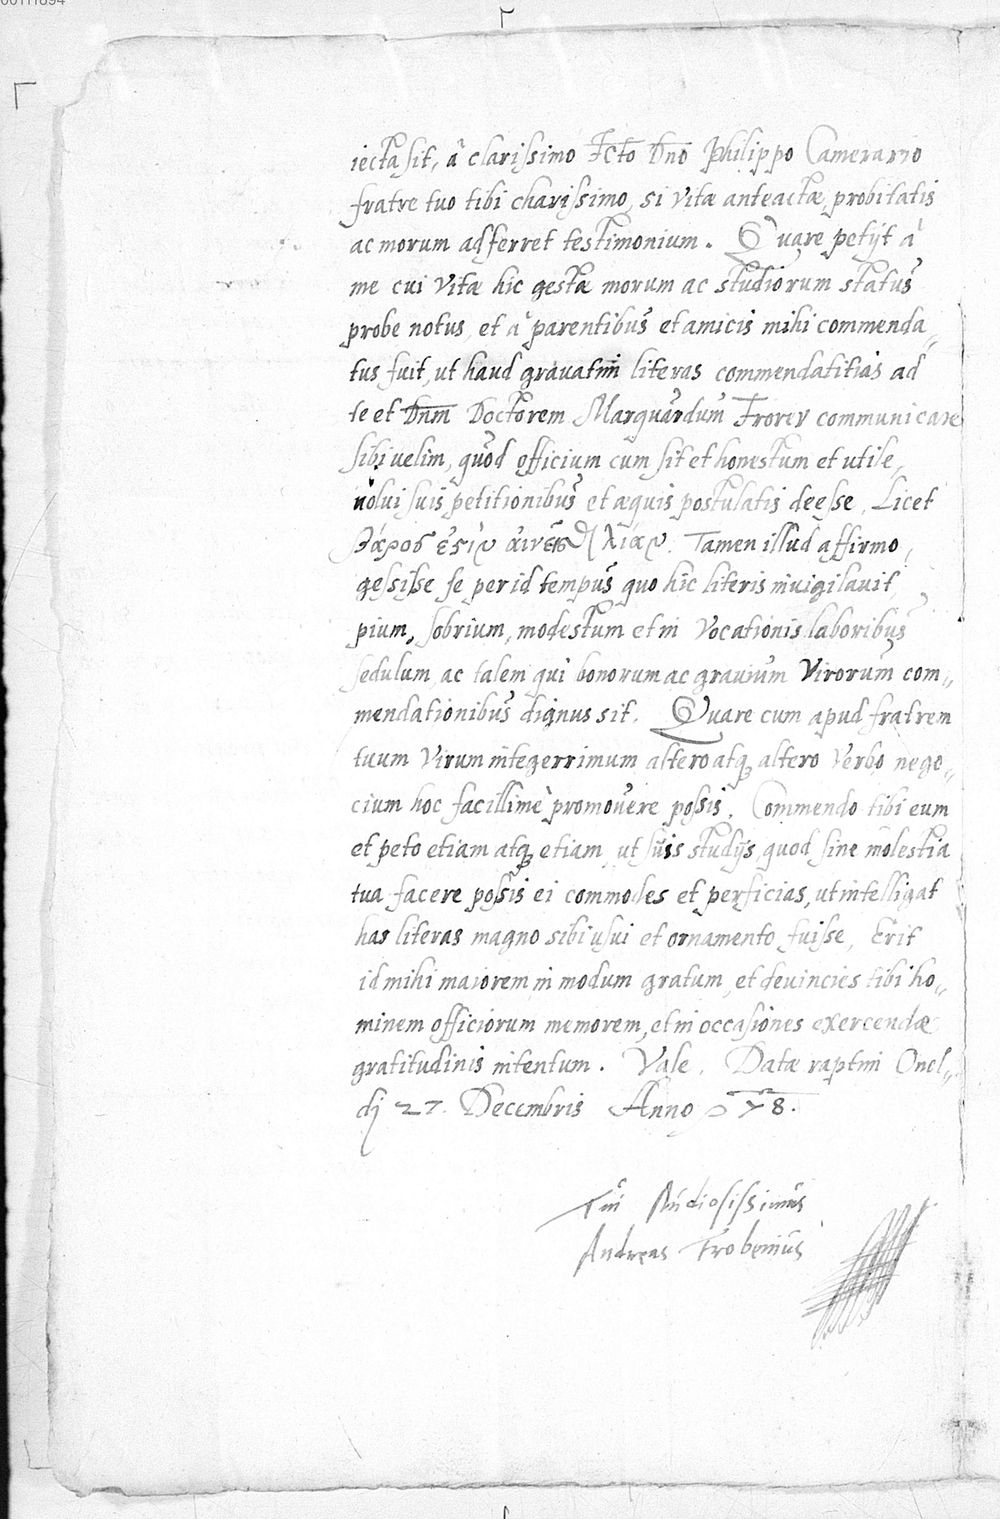 iecta sit, â clarissimo Jcto Dno Philippo Camerario
fratre tuo tibi charissimo, si vitæ anteactæ, probitatis
ac morum adferret testimonium. Quare petijt à
me cui vitæ hic gestæ morum ac studiorum status
probe notus, et à parentibus et amicis mihi commenda„
tus fuit, ut haud gravatim literas commendatitias ad
te et Dnm Doctorem Marquardum Frorer communicare
sibi uelim, quod officium cum sit et honestum et utile,
nolui suis petitionibus et æquis postulatis deesse. Licet
λίαν. Tamen illud affirmo,
gessisse se per id tempus quo hic literis inuigilauit,
pium, sobrium, modestum et in vocationis laboribus
sedulum, ac talem qui bonorum ac grauium Virorum com„
mendationibus dignus sit. Quare cum apud fratrem
tuum virum integerrimum altero atq altero verbo nego„
cium hoc facillimè promouere possis. Commendo tibi eum
et peto etiam atq etiam, ut suis studijs, quod sine molestia
tua facere possis ei commodes et perficias, ut intelligat
has literas magno sibi usui et ornamento fuisse. Erit
id mihi maiorem in modum gratum, et deuincies tibi ho„
minem officiorum memorem, et in occasiones exercendæ
gratitudinis intentum. Vale. Datæ raptim Onol„
dj 27. Decembris Anno 78.
Tui studiosissimus
Andreas Frobenius